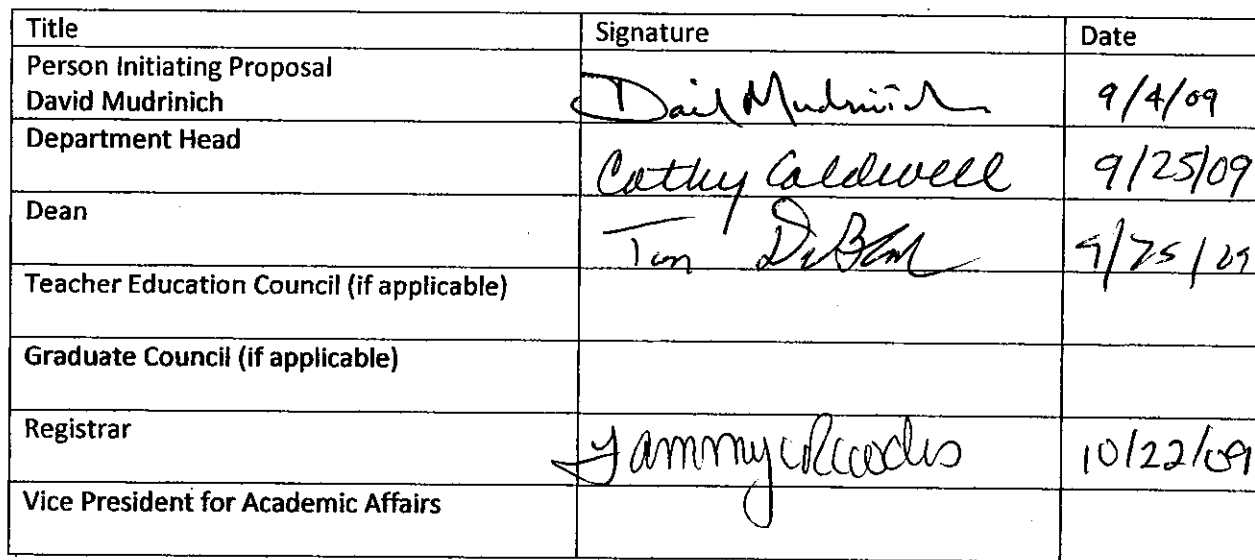 Title Signature Date
Person Initiating Proposal
David Mudrinich David Mudrinich 9/4/09
Department Head
Cathy Caldwell 9/25/09
Dean
Tom 9/25/09
Teacher Education Council (if applicable)
Graduate Council (if applicable)
Registrar
Tammy Rhodes 10/22/09
Vice President for Academic Affairs